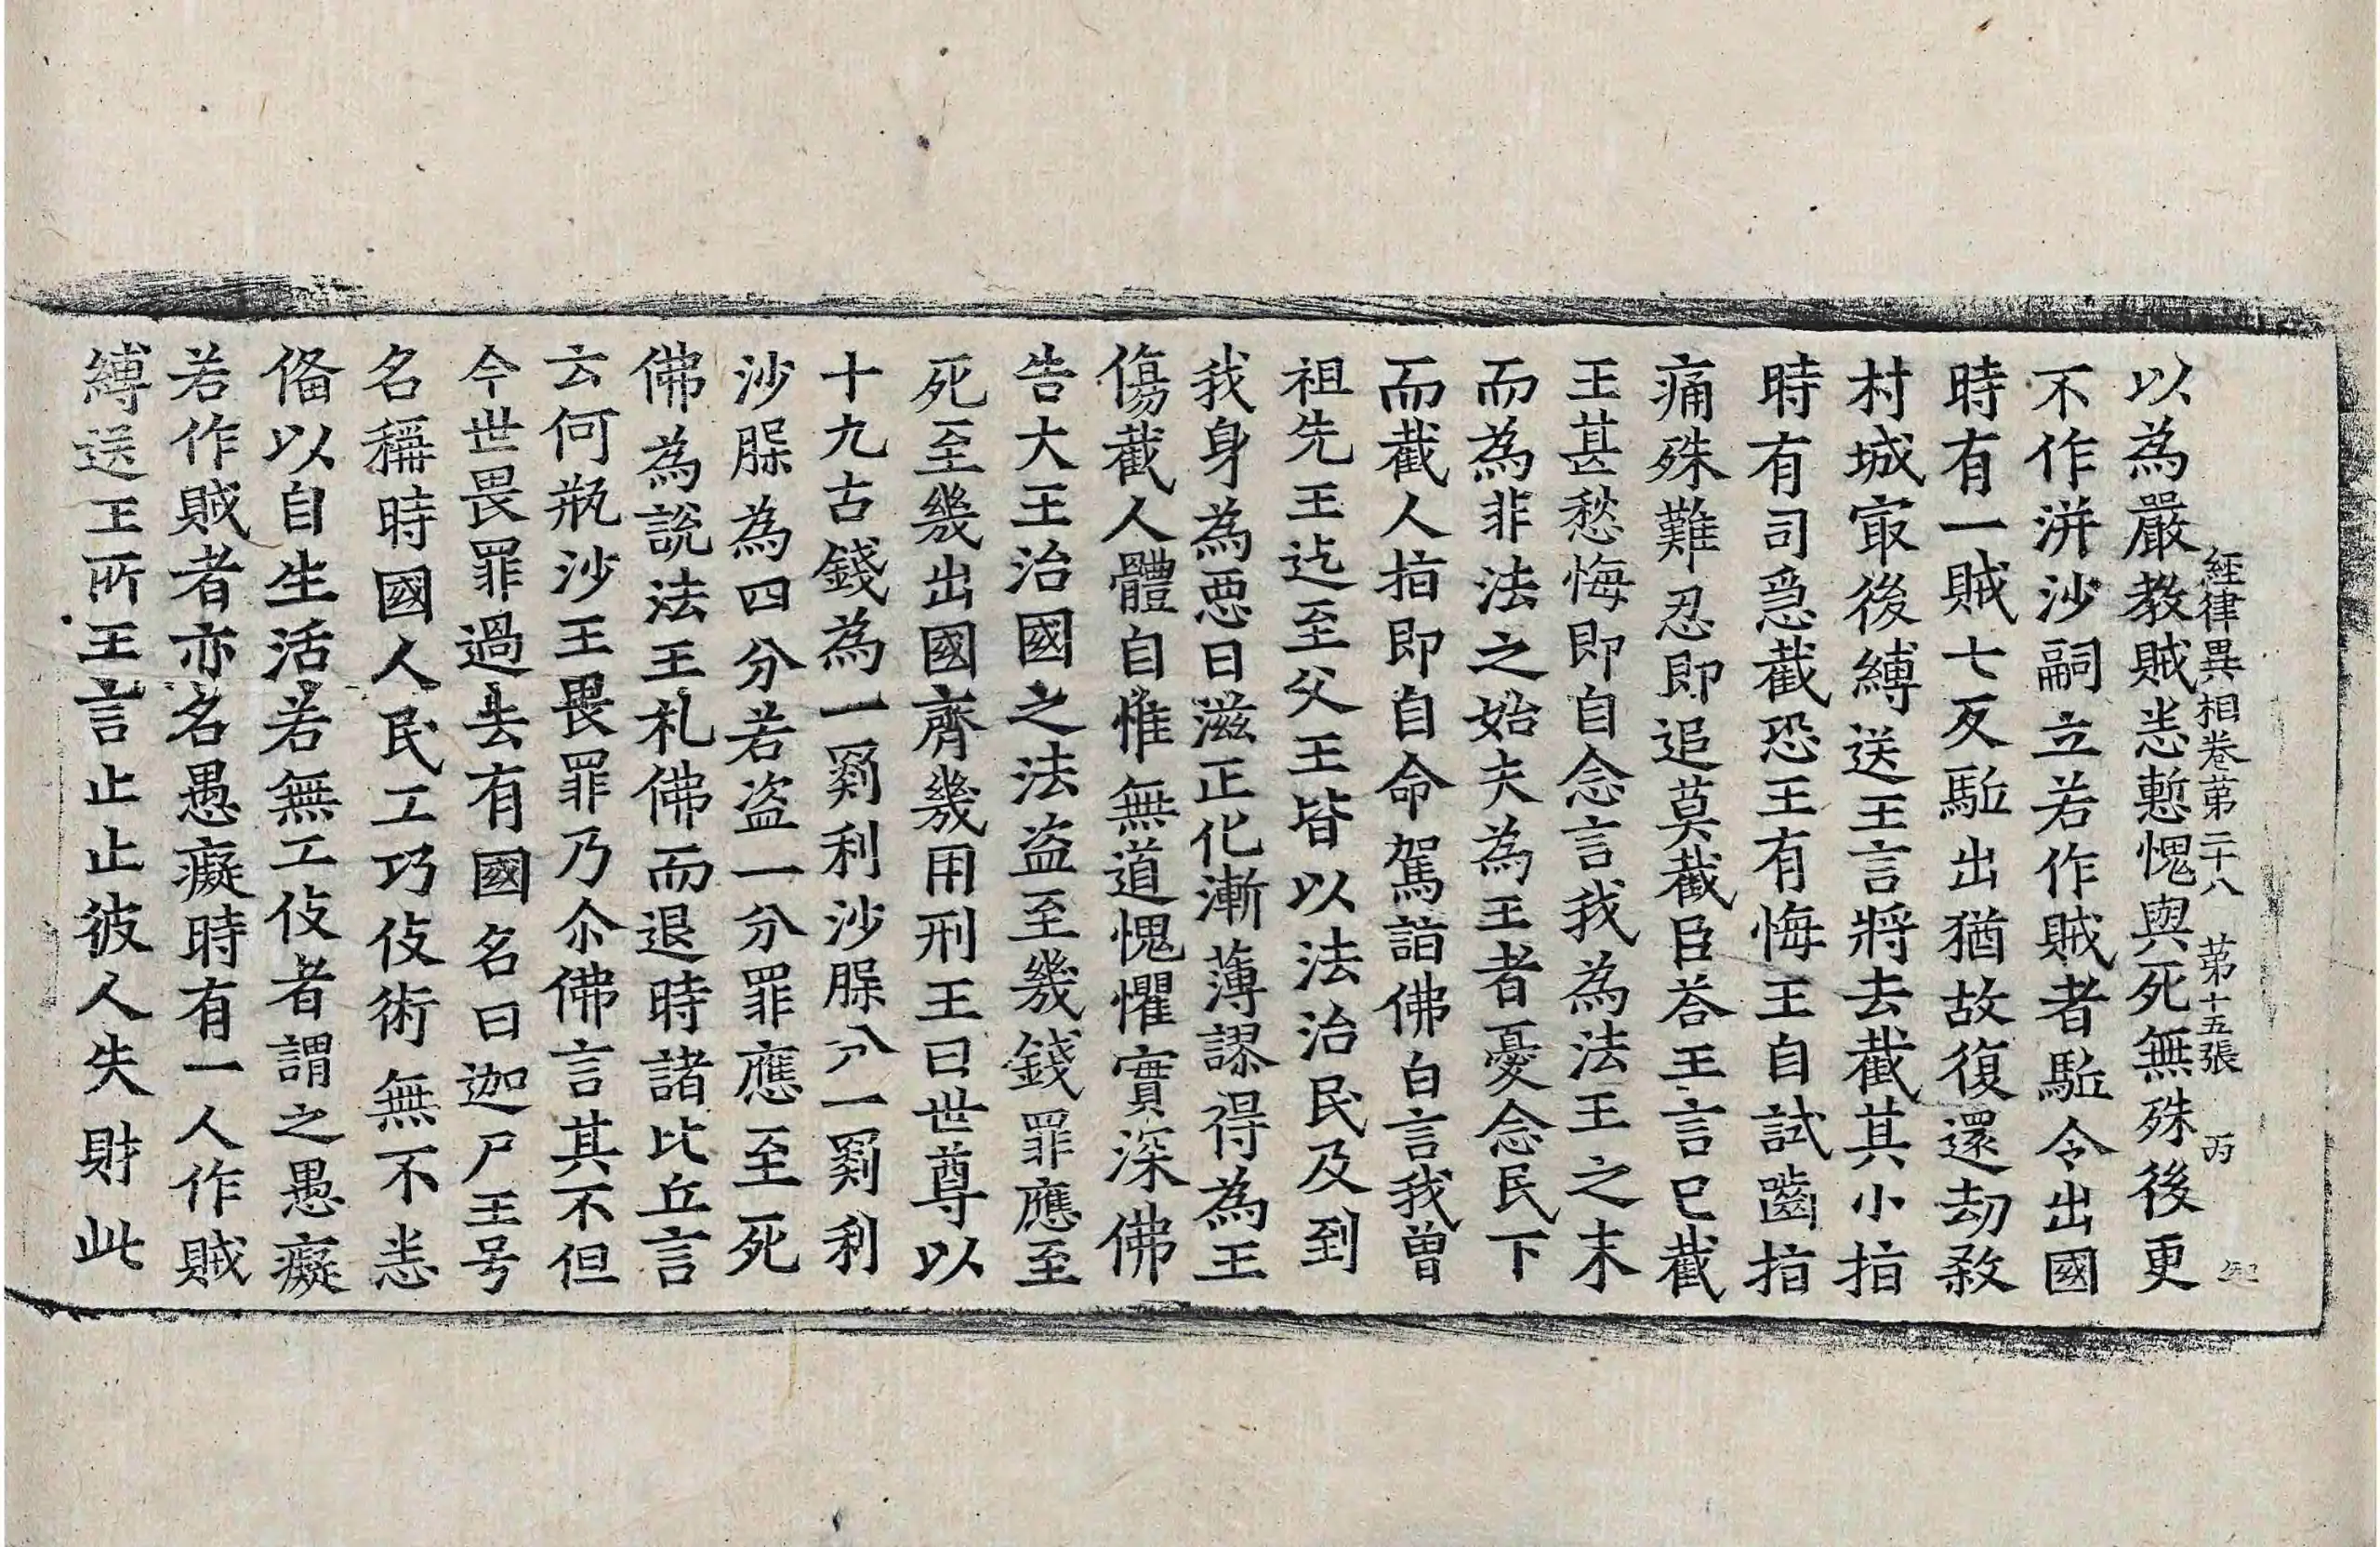 經律異相卷第二十八 第十五張 丙
以為嚴教賊恙慙愧與死無殊後更
不作洴沙嗣立若作賊者駈令出國
時有一賊七反駈出猶故復還劫煞
村城寂後縛送王言將去截其小指
時有司急截恐王有悔王自試嚙指
痛殊難忍即追莫截臣荅王言已截
王甚愁悔即自念言我為法王之末
而為非法之始夫為王者憂念民下
而截人指即自命駕詣佛白言我曾
祖先王迄至父王皆以法治民及到
我身為惡日滋正化漸薄謬得為王
傷截人體自惟無道愧懼實深佛
告大王治國之法盜至幾錢罪應至
死至幾出國齊幾用刑王曰世尊以
十九古錢為一罽利沙腜分一罽利
沙腜為四分若盜一分罪應至死
佛為說法王礼佛而退時諸比丘言
云何瓶沙王畏罪乃尒佛言其不但
今世畏罪過去有國名曰迦尸王号
名稱時國人民工巧伎術無不恙
俻以自生活若無工伎者謂之愚癡
若作賊者亦名愚癡時有一人作賊
縛送王所王言止止彼人失財此